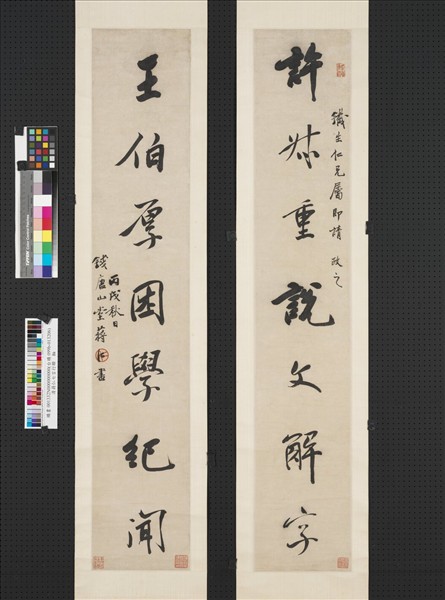 鐵生仁兄屬即請 政之
許叔重說文解字
王伯厚困學紀聞
丙戌秋日
錢唐山堂蔣仁書